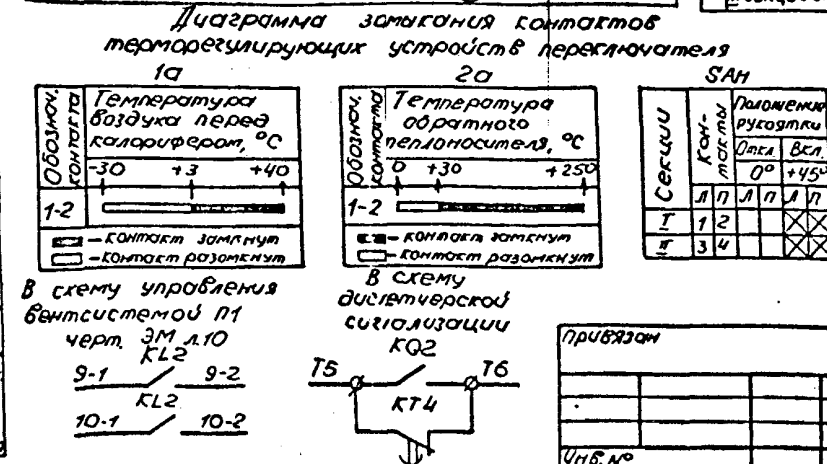 Диаграмма замыкания контактов
терморегулирующих устройств переключателя
1а
Обознач. контакта
Температура воздуха перед калорифером, °С
-30 +3 +40
1-2
- контакт замкнут
- контакт разомкнут
2а
Обознач. контакта
Температура обратного теплоносителя, °С
0 +30 +250
1-2
- контакт замкнут
- контакт разомкнут
SAH
Секции
Контакты
Положение рукоятки
Откл. Вкл.
0° +45°
Л П Л П Л П
I 1 2
II 3 4
В схему управления
вентсистемой П1
черт. ЭМ л.10
KL2
9-1 9-2
KL2
10-1 10-2
В схему
диспетчерской
сигнализации
KQ2
T5 T6
KT4
Привязан
Инв. №